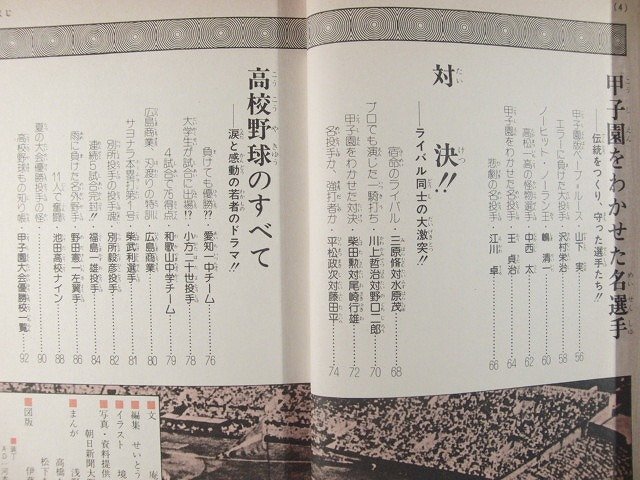 (4)
甲子園をわかせた名選手
――伝統をつくり、守った選手たち!!
甲子園版ベーブ・ルース 山下 実……56
エラーに負けた大投手 沢村栄治……58
ノーヒット・ノーラン王 嶋 清一……60
高松一高の怪物選手 中西 太……62
甲子園をわかせた名投手 王 貞治……64
悲劇の名投手 江川 卓……66
対決!!
――ライバル同士の大激突!!
宿命のライバル 三原脩対水原茂……68
プロでも演じた一騎打ち 川上哲治対野口二郎……70
甲子園をわかせた対決 柴田勲対尾崎行雄……72
名投手か、強打者か 平松政次対藤田平……74
高校野球のすべて
――涙と感動の若者のドラマ!!
負けても優勝?? 愛知一中チーム……76
大学生が試合に出場!? 小方二十世投手……78
4試合で75得点 和歌山中学チーム……79
広島商業 刃渡りの特訓 広島商業……80
サヨナラ本塁打第1号 柴武利選手……81
別所投手の投手魂 別所毅彦投手……82
連続5試合完封!! 福島一雄投手……84
雨に負けた名外野手 野田憲一左翼手……86
11人で奮闘 池田高校ナイン……88
夏の大会優勝投手の怪……90
高校野球もの知り帳 甲子園大会優勝校一覧……92
■文
■編集 せいとう
■イラスト 境
■写真・資料提供
朝日新聞大
■まんが 浅
高橋
松下
■図版 伊